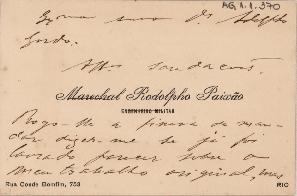 AG.1.1.370
Exmo snr Dr. Adolpho
Gordo.
Attos saudações.
Marechal Rodolpho Paixão
ENGENHEIRO MILITAR
Rogo-lhe a fineza de man-
dar dizer-me se já foi
lavrado parecer sobre o
meu trabalho original, mas
Rua Conde Bomfim, 753
RIO